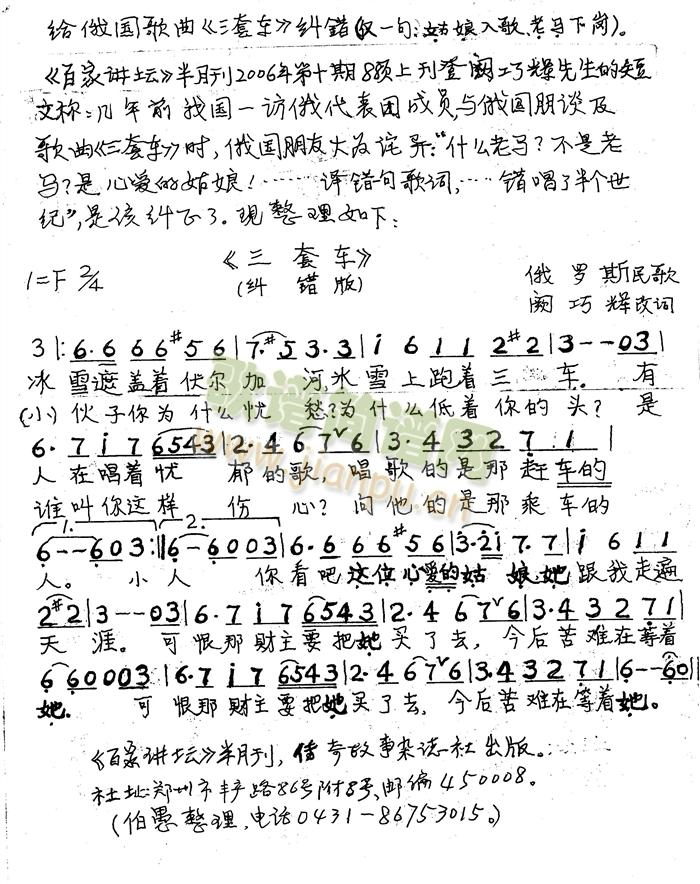 给俄国歌曲《三套车》纠错(仅一句:姑娘入歌,老马下岗)。
《百家讲坛》半月刊2006年第十期8页上刊登阙巧辉先生的短
文称:几年前我国一访俄代表团成员与俄国朋谈及
歌曲《三套车》时,俄国朋友大为诧异:"什么老马?不是老
马?是心爱的姑娘!……译错句歌词,……错唱了半个世
纪",是该纠正了.现整理如下:
《三套车》
1=F 2/4
(纠错版)
俄罗斯民歌
阙巧辉改词
3|:6.6 6 6 #5 6|7. #5 3.3|i 6 1 1 2 #2|3--03|
冰雪遮盖着伏尔加河,冰雪上跑着三车.有
(小)伙子你为什么忧愁?为什么低着你的头?是
6.7 i 7 6543|2.4 6 7 6|3.4 3 2 7 1|
人在唱着忧郁的歌,唱歌的是那赶车的
谁叫你这样伤心?问他的是那乘车的
1. 2.
6--603:||6-6003|6.6 6 6 #5 6|3.2i 7.7|i 6 1 1
人。小人你看吧这位心爱的姑娘,她跟我走遍
2 #2|3--03|6.7 i 7 6543|2.4 6 7 6|3.4 3 2 7 1|
天涯.可恨那财主要把她买了去,今后苦难在等着
6 60003|6.7 i 7 6543|2.4 6 7 6|3.4 3 2 7 1|6--60||
她.可恨那财主要把她买了去,今后苦难在等着她。
《百家讲坛》半月刊,传奇故事杂志社出版。
社址:郑州市丰产路86号附8号,邮编450008。
(伯愚整理,电话0431-86753015。)
歌谱简谱网
www.jianpu.cn